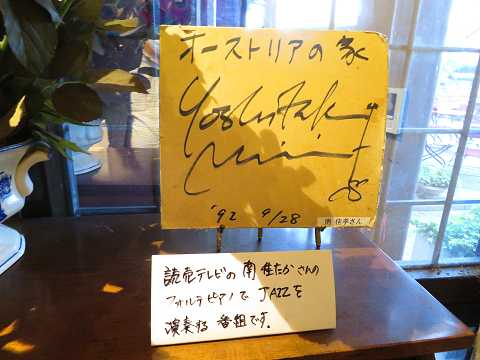 オーストリアの家
Yoshitaka
Minami
'92 9/28
南 佳孝さん
読売テレビの南佳たかさんの
フォルテピアノで JAZZを
演奏する 番組です。